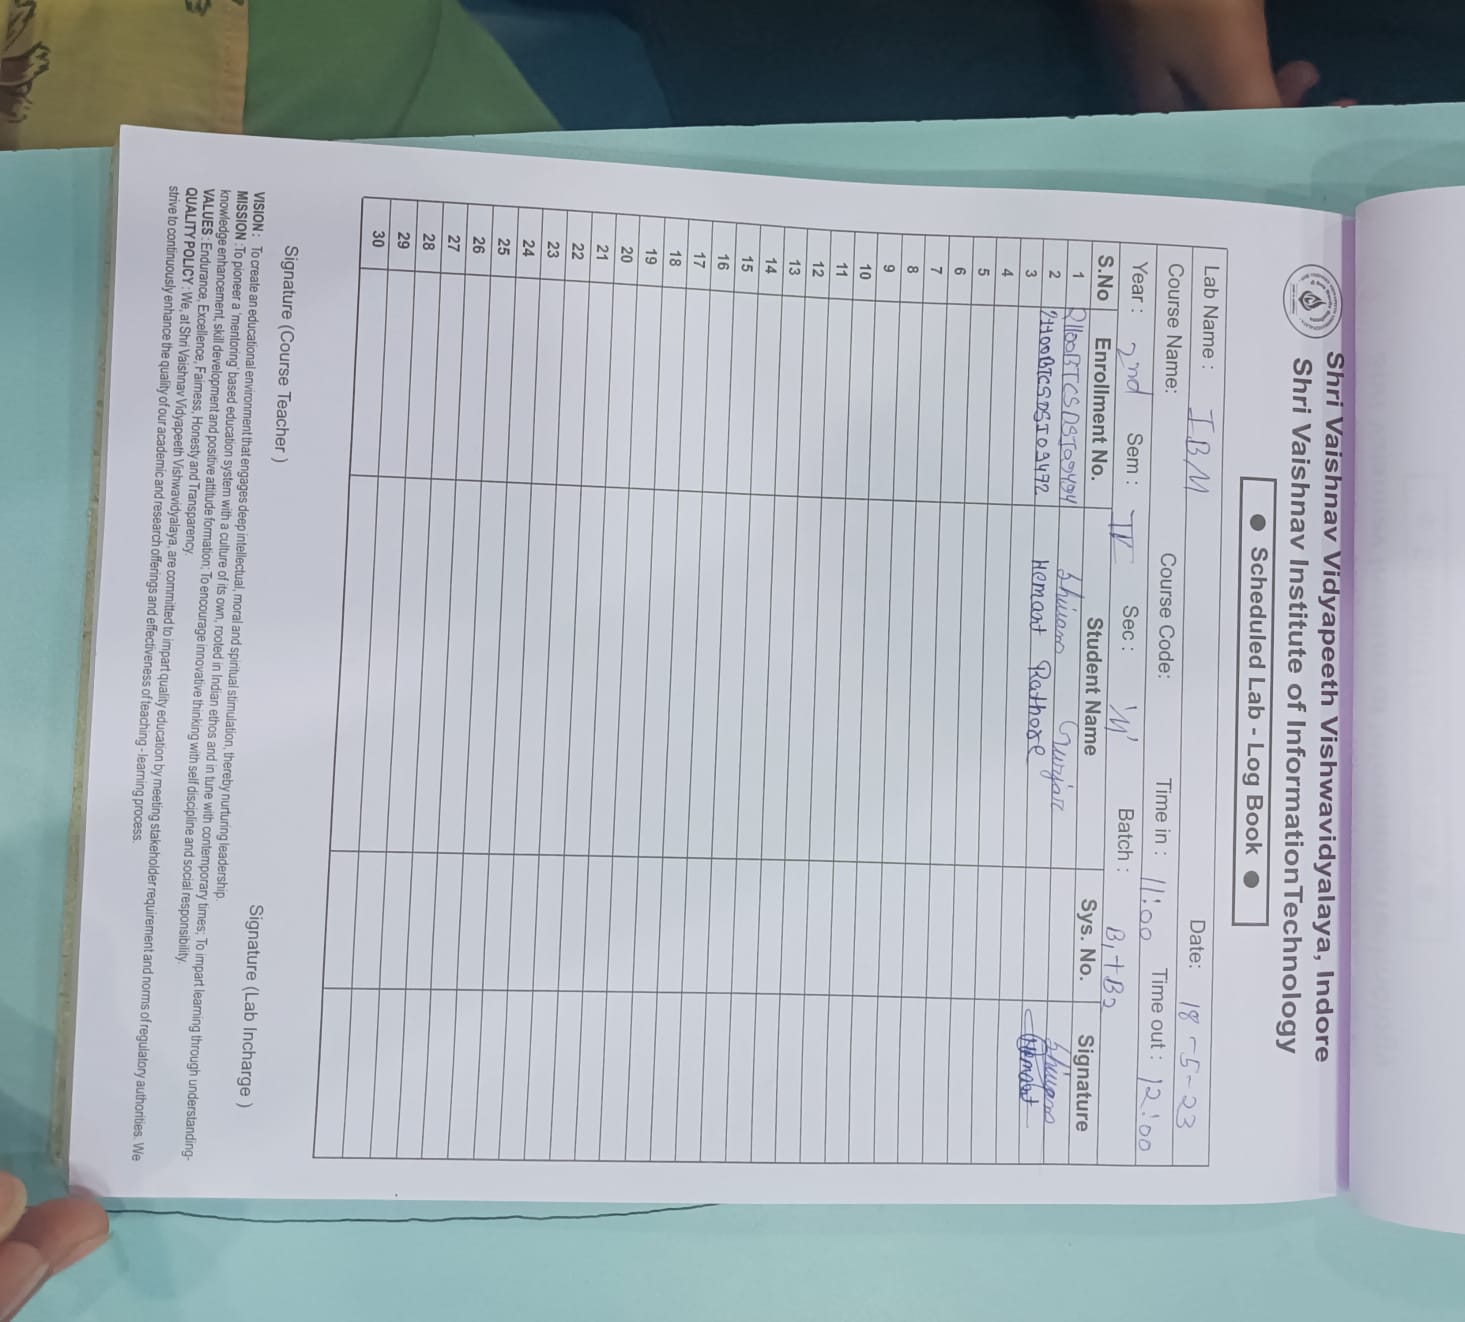 Shri Vaishnav Vidyapeeth Vishwavidyalaya, Indore
Shri Vaishnav Institute of InformationTechnology
● Scheduled Lab - Log Book ●
Lab Name : IBM Date: 18-5-23
Course Name: Course Code: Time in : 11:00 Time out : 12:00
Year : 2nd Sem : IV Sec : 'M' Batch : B1+B2
S.No Enrollment No. Student Name Sys. No. Signature
1 21100BTCSDSI09494 Shivam Gurjar Shivam
2 21100BTCSDSI09472 Hemant Rathore Hemant
3
4
5
6
7
8
9
10
11
12
13
14
15
16
17
18
19
20
21
22
23
24
25
26
27
28
29
30
Signature (Course Teacher ) Signature (Lab Incharge )
VISION : To create an educational environment that engages deep intellectual, moral and spiritual stimulation, thereby nurturing leadership.
MISSION :To pioneer a 'mentoring' based education system with a culture of its own, rooted in Indian ethos and in tune with contemporary times; To impart learning through understanding-
knowledge enhancement, skill development and positive attitude formation; To encourage innovative thinking with self discipline and social responsibility.
VALUES : Endurance, Excellence, Fairness, Honesty and Transparency.
QUALITY POLICY : We, at Shri Vaishnav Vidyapeeth Vishwavidyalaya, are committed to impart quality education by meeting stakeholder requirement and norms of regulatory authorities. We
strive to continuously enhance the quality of our academic and research offerings and effectiveness of teaching - learning process.